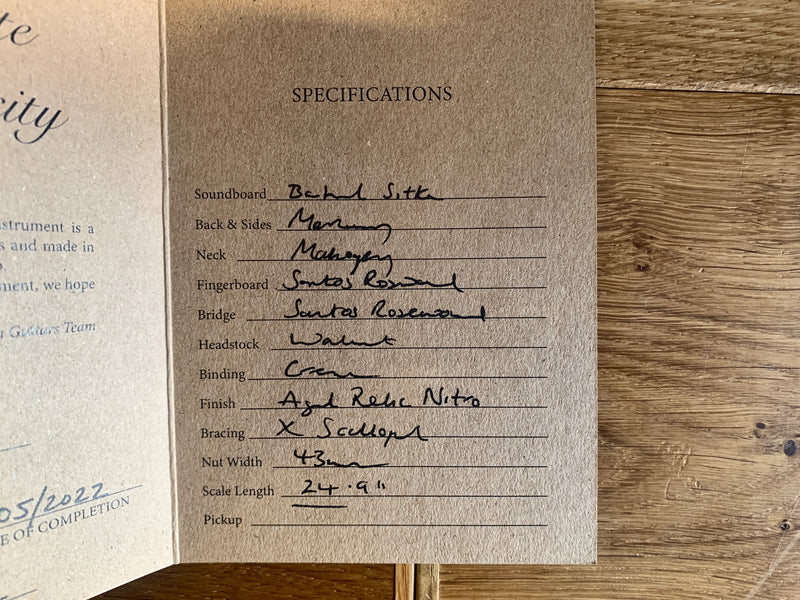 te
city
nstrument is a
s and made in
ment, we hope
Guitars Team
05/2022
E OF COMPLETION
SPECIFICATIONS
Soundboard Baked Sitka
Back & Sides
Neck Mahogany
Fingerboard Santos Rosewood
Bridge Santos Rosewood
Headstock Walnut
Binding Cream
Finish Aged Relic Nitro
Bracing X Scalloped
Nut Width 43mm
Scale Length 24.9"
Pickup